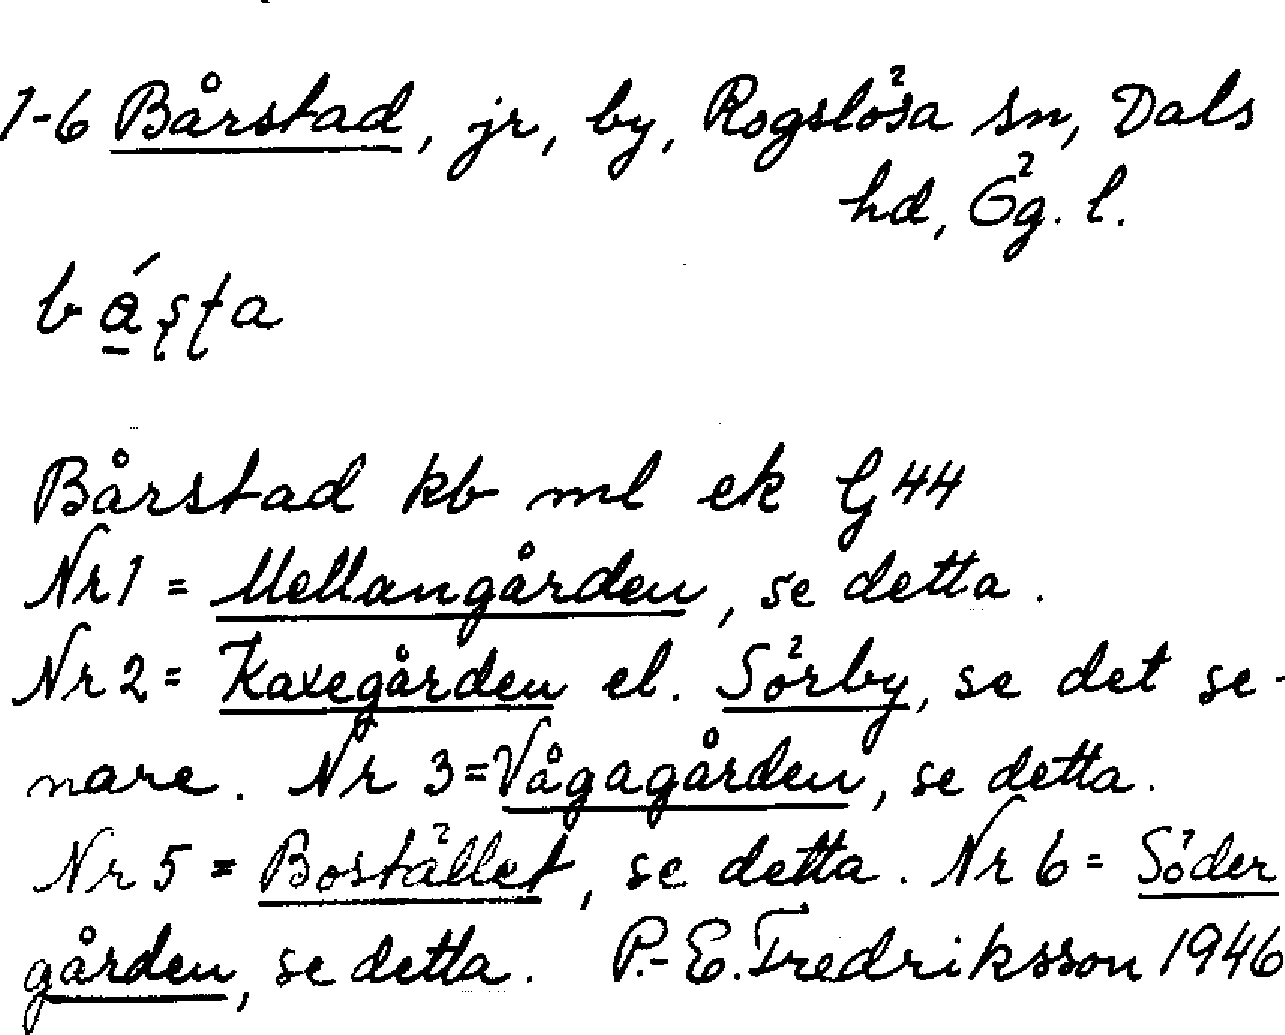 1-6 Bårstad, jr, by, Rogslösa sn, Dals
hd, Ög. l.
bá̱ʂʈa
Bårstad kb ml ek G 44
Nr 1 = Mellangården, se detta.
Nr 2 = Kaxegården el. Sörby, se det se-
nare. Nr 3 = Vågagården, se detta.
Nr 5 = Bostället, se detta. Nr 6 = Söder
gården, se detta. P.-E. Fredriksson 1946